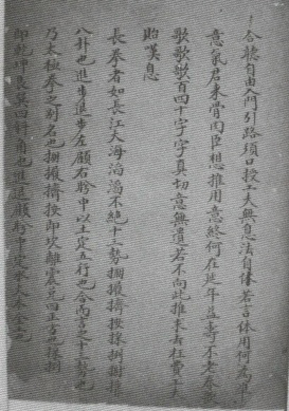 合聽自由入門引路須口授工夫無息法自休若言体用何為準
意氣君來骨肉臣想推用意終何在延年益壽不老春歌兮
歌兮歌兮百四十字字真切意無遺若不向此推求去枉費工夫
貽嘆息
長拳者如長江大海滔滔不絕十三勢掤捋擠按採挒肘靠
八卦也進步退步左顧右盼中定五行也合而言之十三勢也
乃太極拳之別名也掤捋擠按即坎離震兌四正方也採挒
即乾坤艮巽四斜角也進退顧盼中定水火木金土也